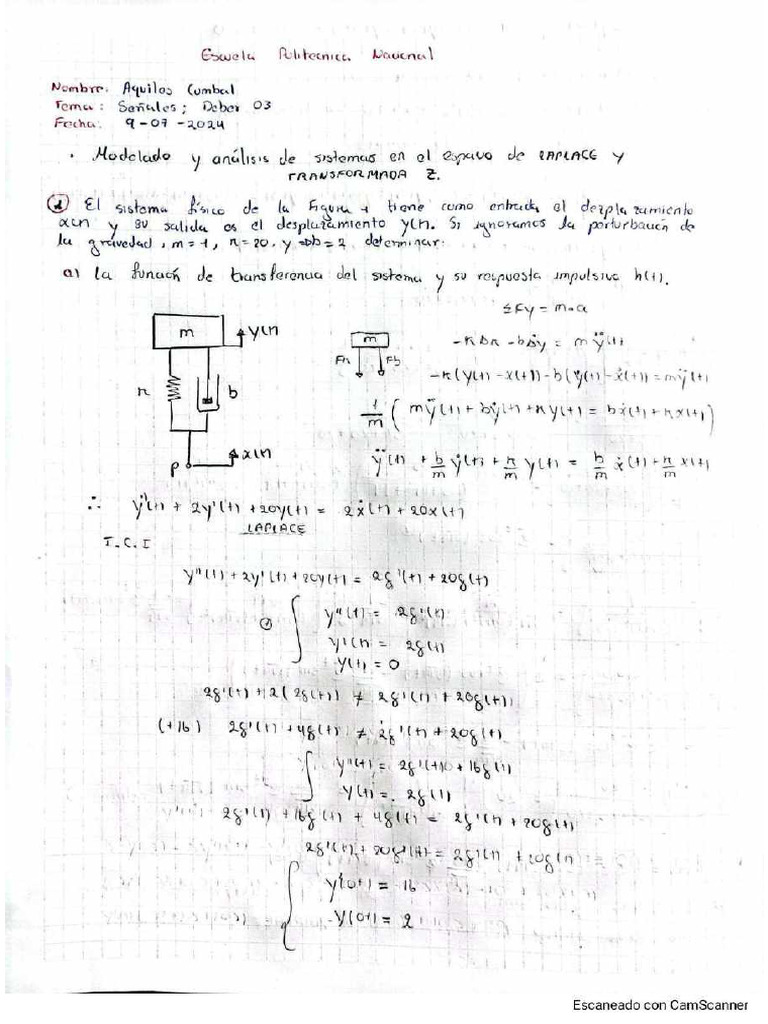 Escuela Politecnica Nacional
Nombre: Aquiles Cumbal
Tema: Señales; Deber 03
Fecha: 9-07-2024
. Modelado y análisis de sistemas en el espacio de LAPLACE y
TRANSFORMADA Z.
El sistema físico de la Figura 1 tiene como entrada el dezplazamiento
x(t) y su salida es el desplazamiento y(t). Si ignoramos la perturbación de
la gravedad, m=1, k=20, y b=2 determinar:
a) la función de transferencia del sistema y su respuesta impulsiva h(t).
ΣFy = m·a
m y(t)
m
-kΔk - bΔẏ = mÿ(t)
Fk Fb
-k(y(t)-x(t))-b(ẏ(t)-ẋ(t))=mÿ(t)
k b
1/m ( mÿ(t)+bẏ(t)+ky(t) = bẋ(t)+kx(t) )
x(t)
P
ÿ(t) + b/m ẏ(t) + k/m y(t) = b/m ẋ(t) + k/m x(t)
∴ y''(t) + 2y'(t) + 20y(t) = 2ẋ(t) + 20x(t)
LAPLACE
I.C.I
y''(t)+2y'(t)+20y(t) = 2δ'(t)+20δ(t)
y''(t) = 2δ'(t)
y'(t) = 2δ(t)
y(t) = 0
2δ'(t)+2(2δ(t)) ≠ 2δ'(t)+20δ(t)
(+16) 2δ'(t)+4δ(t) ≠ 2δ'(t)+20δ(t)
y''(t) = 2δ'(t)+16δ(t)
y'(t) = 2δ(t)
2δ'(t) + 16δ(t) + 4δ(t) = 2δ'(t)+20δ(t)
2δ'(t)+20δ'(t) = 2δ'(t) + 20δ(t)
y'(0+) = 16
y(0+) = 2
Escaneado con CamScanner